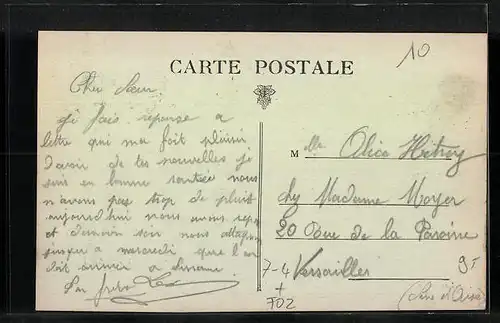 10
CARTE POSTALE
Cher Sœur
je fais réponse a
lettre qui ma fait plaisir
davoir de tes nouvelles je
suis en bonne santée nous
navons pas trop de pluit
aujourdhui nous avons
et demain soir nous
jusqua a mercredi que l'on
doit arriver a
Ton frère
Melle Alice
chez Madame Moyer
20 Rue de la Paroisse
Versailles
(Seine et Oise)
7-4
+
702
95